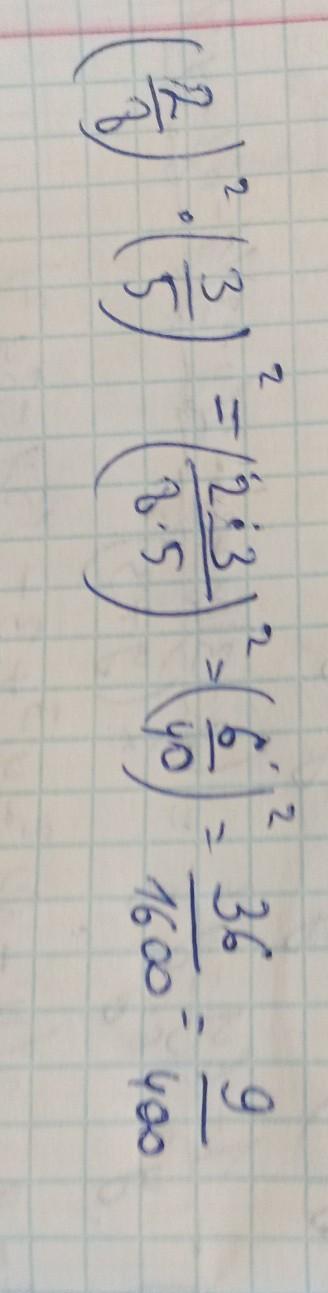 (2/8)² · (3/5)² = (2·3/8·5)² = (6/40)² = 36/1600 = 9/400